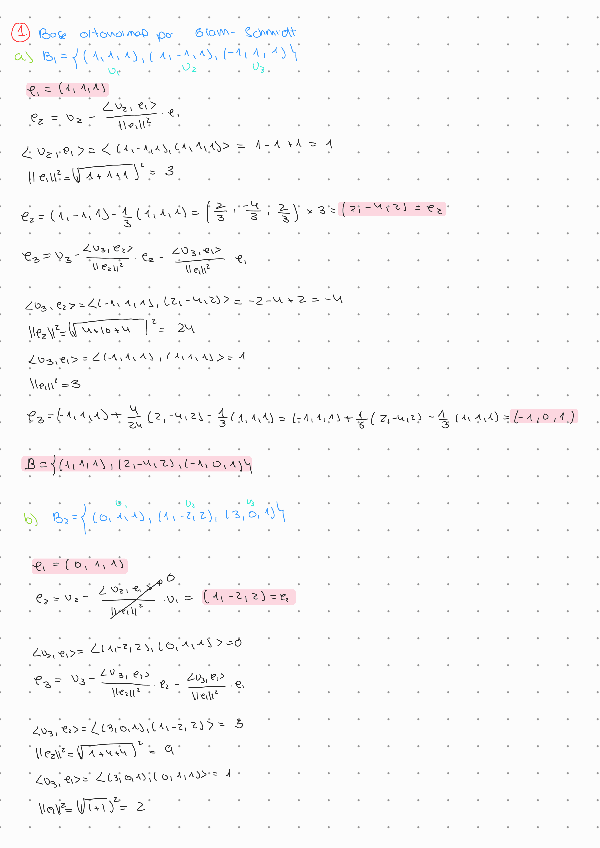 1 Base ortonormal por Gram-Schmidt
a) B₁ = {(1,1,1), (1,-1,1), (-1,1,1)}
v₁ v₂ v₃
e₁ = (1,1,1)
e₂ = v₂ - <v₂,e₁>/||e₁||² · e₁
<v₂,e₁> = <(1,-1,1),(1,1,1)> = 1-1+1 = 1
||e₁||² = (√(1+1+1))² = 3
e₂ = (1,-1,1) - 1/3 (1,1,1) = (2/3, -4/3, 2/3) × 3 = (2,-4,2) = e₂
e₃ = v₃ - <v₃,e₂>/||e₂||² · e₂ - <v₃,e₁>/||e₁||² e₁
<v₃,e₂> = <(-1,1,1),(2,-4,2)> = -2-4+2 = -4
||e₂||² = (√(4+16+4))² = 24
<v₃,e₁> = <(-1,1,1),(1,1,1)> = 1
||e₁||² = 3
e₃ = (-1,1,1) + 4/24 (2,-4,2) - 1/3 (1,1,1) = (-1,1,1) + 1/6 (2,-4,2) - 1/3 (1,1,1) = (-1,0,1)
B = {(1,1,1), (2,-4,2), (-1,0,1)}
v₁ v₂ v₃
b) B₂ = {(0,1,1), (1,-2,2), (3,0,1)}
e₁ = (0,1,1)
e₂ = v₂ - <v₂,e₁>/||e₁||² 0 · v₁ = (1,-2,2) = e₂
<v₂,e₁> = <(1,-2,2),(0,1,1)> = 0
e₃ = v₃ - <v₃,e₂>/||e₂||² · e₂ - <v₃,e₁>/||e₁||² e₁
<v₃,e₂> = <(3,0,1),(1,-2,2)> = 3
||e₂||² = (√(1+4+4))² = 9
<v₃,e₁> = <(3,0,1),(0,1,1)> = 1
||e₁||² = (√(1+1))² = 2